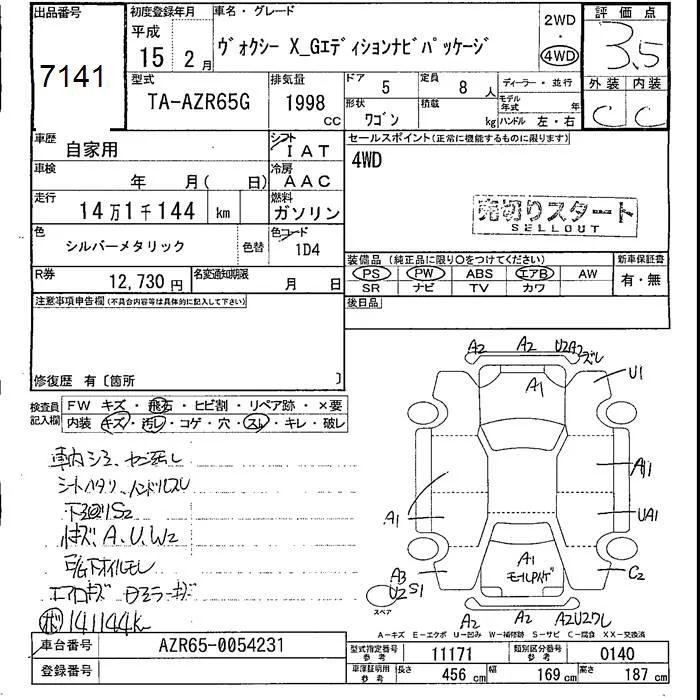 出品番号
7141
初度登録年月
平成
15 2 月
車名・グレード
ヴォクシー X_Gエディションナビパッケージ
2WD
・
4WD
評価点
3.5
外装 内装
C C
型式
TA-AZR65G
排気量
1998
cc
ドア 5
形状
ワゴン
定員 8 人
積載
kg
ディーラー・並行
モデル年式 年
ハンドル 左・右
車歴
自家用
シフト
I A T
車検
年 月( 日)
冷房
A A C
走行
14万1千144 km
燃料
ガソリン
色
シルバーメタリック
色替
色コード
1D4
R券
12,730 円
名変通知期限
月 日
セールスポイント(正常に機能するものに限ります)
4WD
売切りスタート
SELLOUT
装備品 (純正品に限り○をつけてください)
PS PW ABS エアB AW
SR ナビ TV カワ
新車保証書
有・無
後日品
注意事項申告欄(不具合内容等は具体的に記入して下さい)
修復歴 有〔箇所 〕
検査員
記入欄
FW キズ・飛石・ヒビ割・リペア跡・×要
内装 キズ・汚レ・コゲ・穴・スレ・キレ・破レ
車内シミ、
シートハタリ、ハンドルスレ
下廻リS2
キズ A.U.W2
エアロキズ ドアミラーキズ
141144k
A2 A2 U2A2 ズレ
A1
U1
A1
A1
UA1
A1
モールハゲ
C2
A3
U2 S1
スペア
A2 A2 A2U2ワレ
A-キズ E-エクボ U-凹み W-補修跡 S-サビ C-腐食 XX-交換済
車台番号
AZR65-0054231
登録番号
型式指定番号
参考
11171
類別区分番号
参考
0140
車庫証明用
参考
長さ 456 cm
幅 169 cm
高さ 187 cm